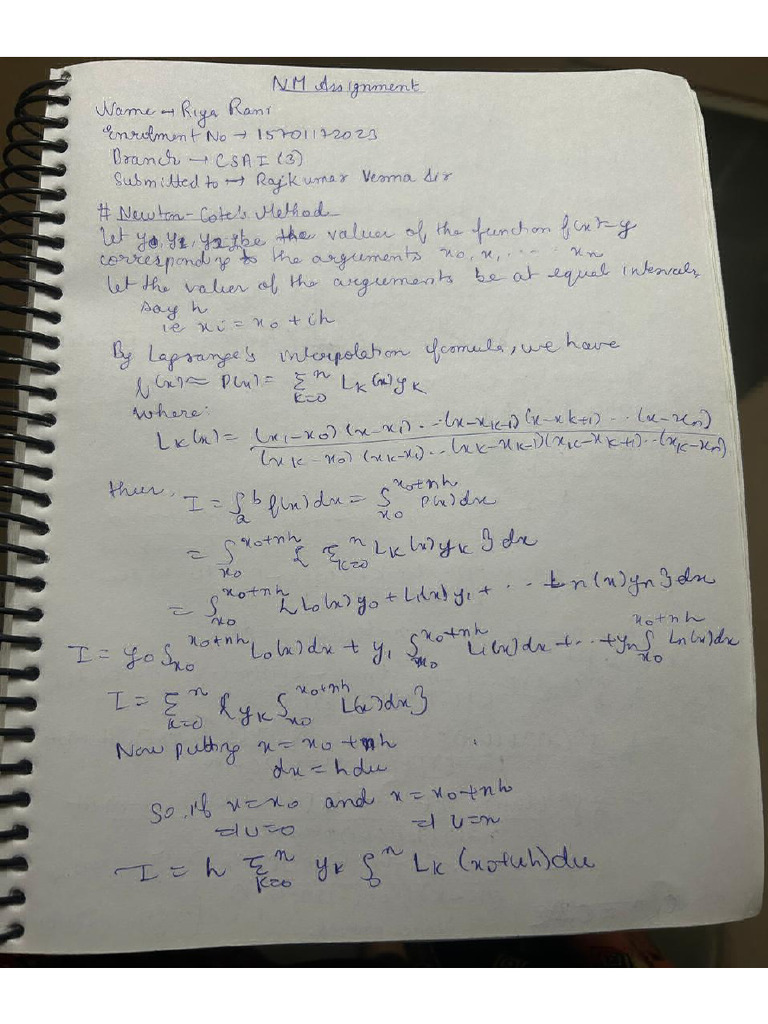 NM Assignment
Name → Riya Rani
Enrolment No → 15701172023
Branch → CSAI (3)
Submitted to → Rajkumar Verma Sir
# Newton-Cote's Method
let y0, y1, y2 be the values of the function f(x) = y
corresponding to the arguments x0, x1, .... xn
let the values of the arguments be at equal intervals,
say h
ie xi = x0 + ih
By Lagrange's interpolation formula, we have
f(x) ≈ P(x) = Σ_{k=0}^{n} Lk(x) yk
where:
Lk(x) = (x1-x0) (x-x1) ... (x-xk-1) (x-xk+1) ... (x-xn)
(xk-x0) (xk-x1) ... (xk-xk-1) (xk-xk+1) ... (xk-xn)
thus, I = ∫_a^b f(x) dx = ∫_{x0}^{x0+nh} P(x) dx
= ∫_{x0}^{x0+nh} { Σ_{k=0}^{n} Lk(x) yk } dx
= ∫_{x0}^{x0+nh} { L0(x) y0 + L1(x) y1 + ... Ln(x) yn } dx
I = y0 ∫_{x0}^{x0+nh} L0(x) dx + y1 ∫_{x0}^{x0+nh} L1(x) dx + ... + yn ∫_{x0}^{x0+nh} Ln(x) dx
I = Σ_{k=0}^{n} { yk ∫_{x0}^{x0+nh} L(x) dx }
Now putting x = x0 + uh
dx = h du
So, if x = x0 and x = x0 + nh
⇒ u = 0 ⇒ u = n
I = h Σ_{k=0}^{n} yk ∫_0^n Lk (x0+uh) du